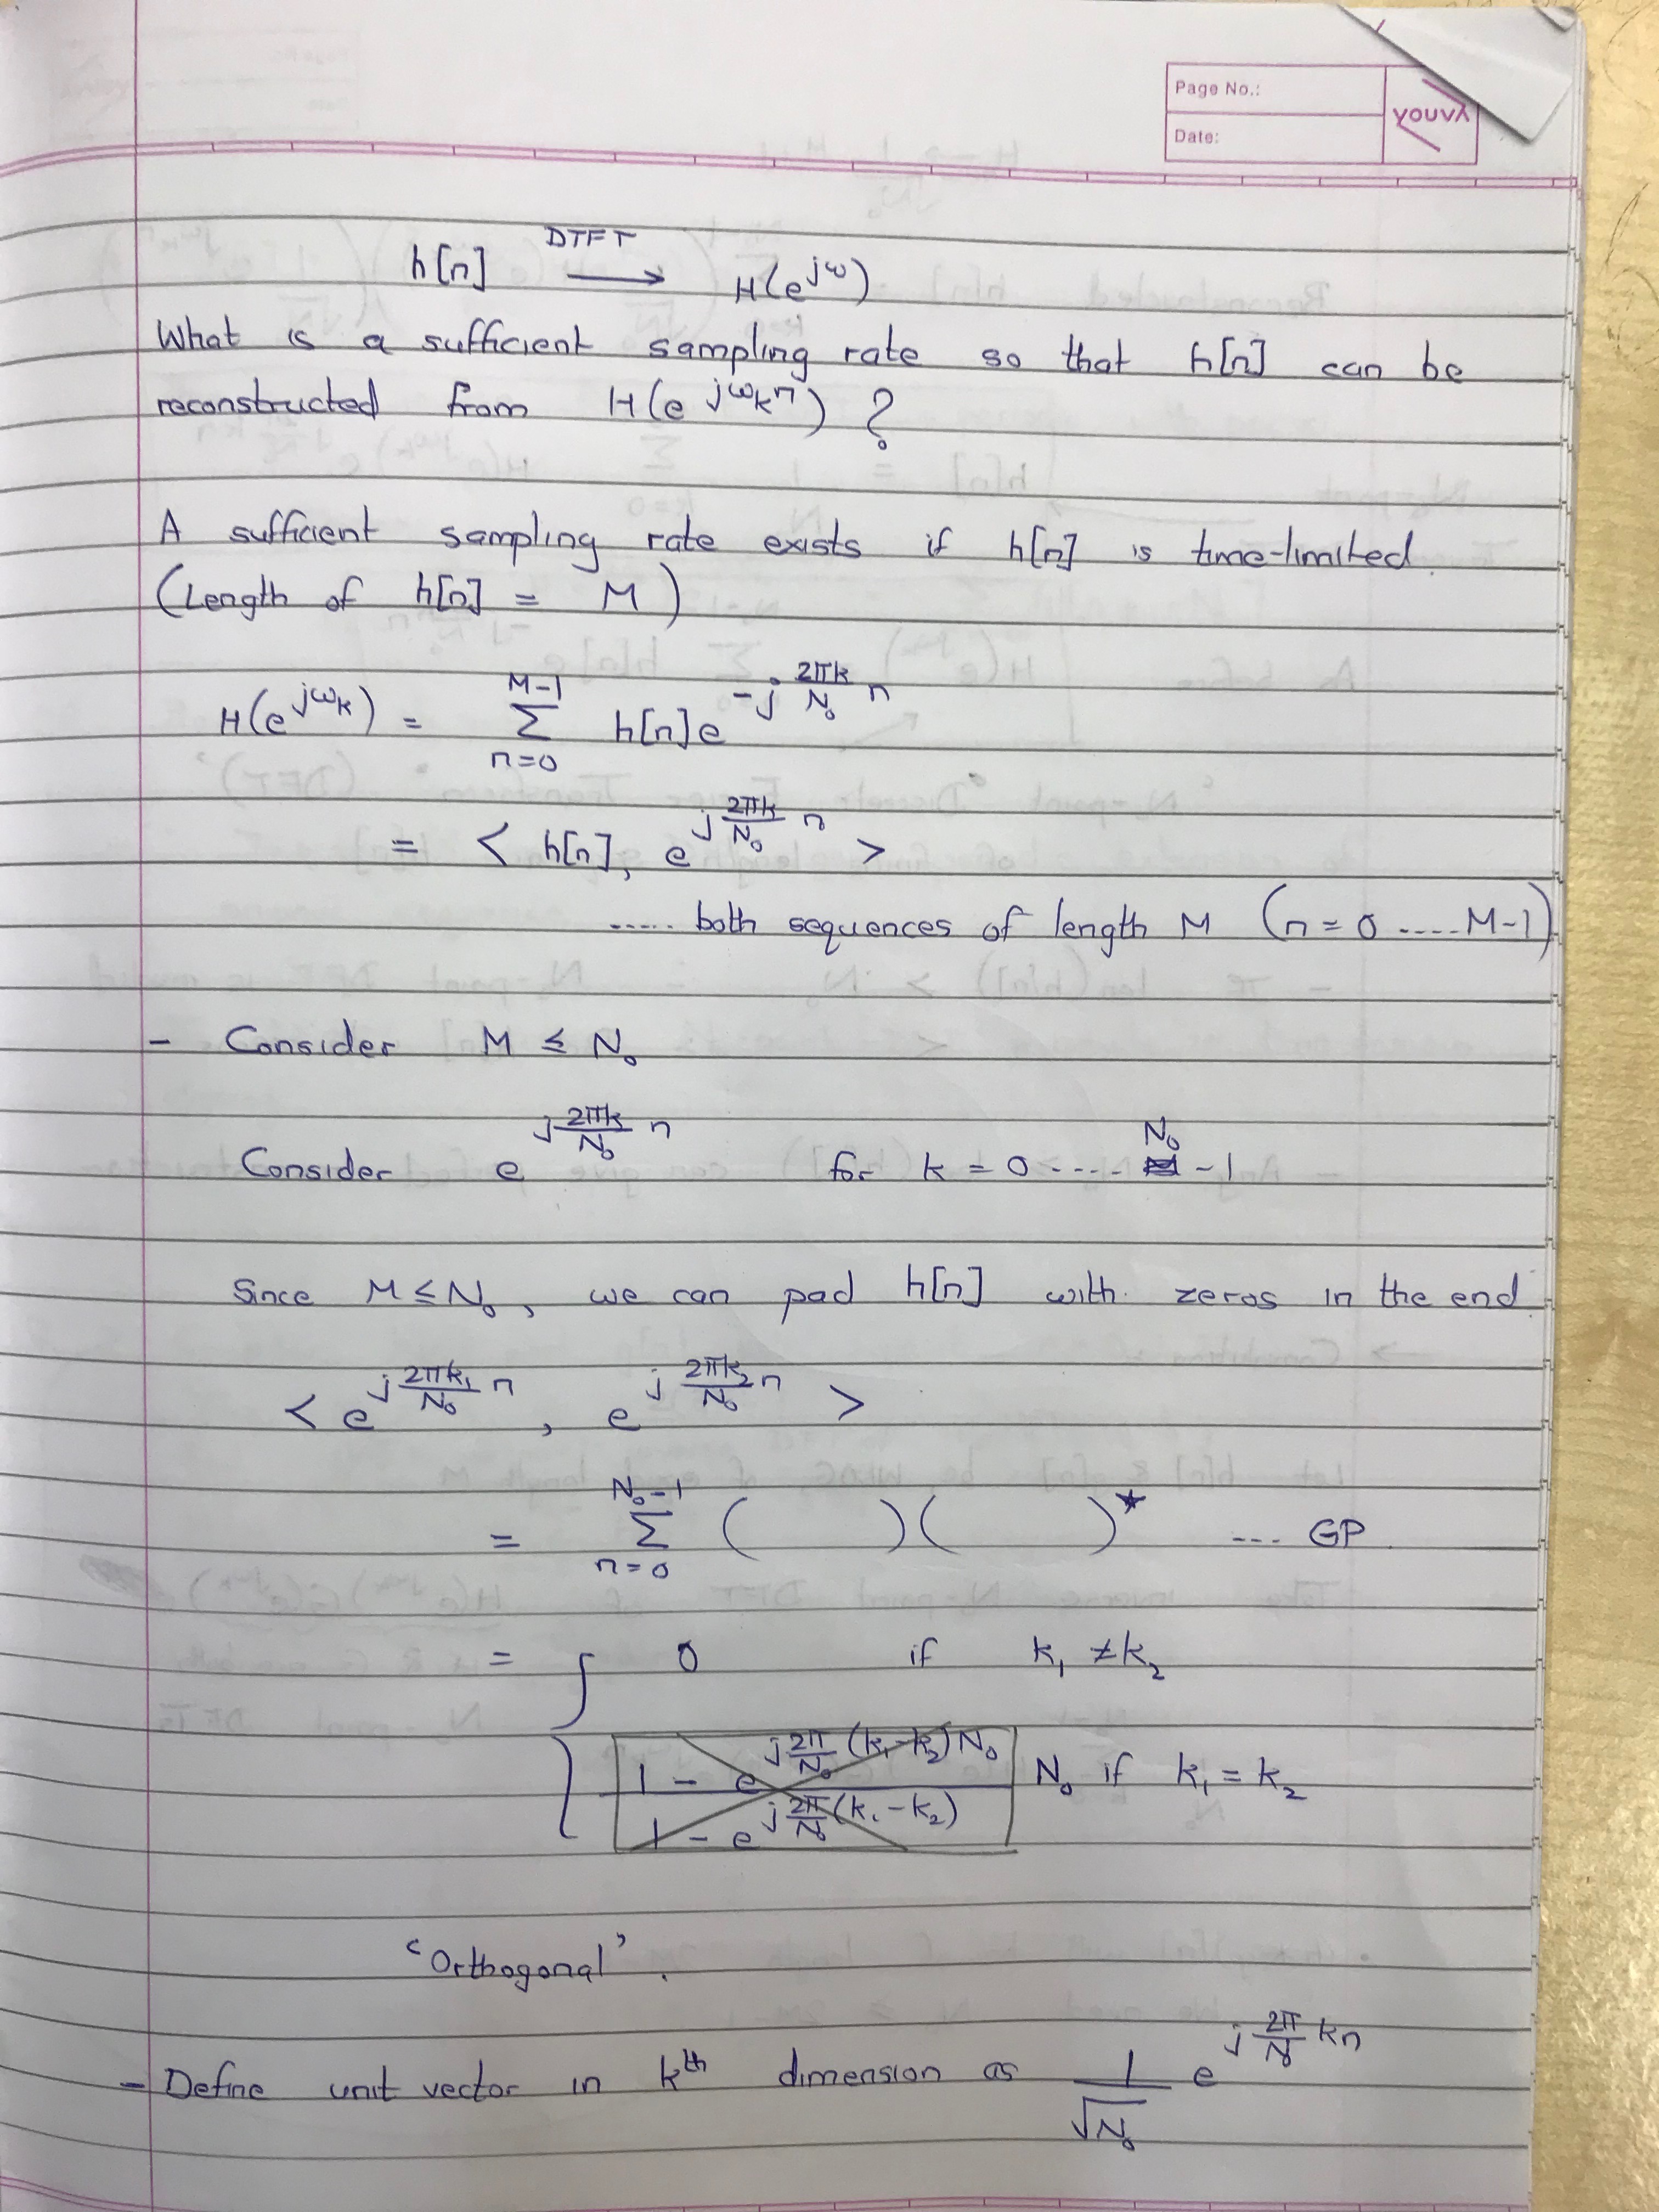 Page No.:
Date:
youvA
h[n] DTFT → H(e^{jω})
What is a sufficient sampling rate so that h[n] can be
reconstructed from H(e^{jω_k n}) ?
A sufficient sampling rate exists if h[n] is time-limited.
(Length of h[n] = M)
H(e^{jω_k}) = Σ_{n=0}^{M-1} h[n] e^{-j \frac{2πk}{N₀} n}
= < h[n], e^{j \frac{2πk}{N₀} n} >
..... both sequences of length M (n = 0 .... M-1)
- Consider M ≤ N₀
Consider e^{j \frac{2πk}{N₀} n} for k = 0 .... N₀ -1
Since M ≤ N₀, we can pad h[n] with zeros in the end
< e^{j \frac{2πk₁}{N₀} n}, e^{j \frac{2πk₂}{N₀} n} >
= Σ_{n=0}^{N₀-1} ( ) ( )* ... GP
= { 0 if k₁ ≠ k₂
\frac{1 - e^{j \frac{2π}{N₀} (k₁-k₂) N₀}}{1 - e^{j \frac{2π}{N₀} (k₁-k₂)}} N₀ if k₁ = k₂
'Orthogonal'.
- Define unit vector in k^{th} dimension as \frac{1}{\sqrt{N₀}} e^{j \frac{2π}{N} kn}